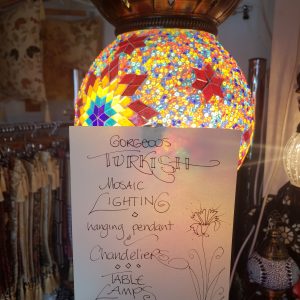 GORGEOUS
TURKISH
MOSAIC
LIGHTING
hanging pendant
Chandeliers
TABLE
LAMPS